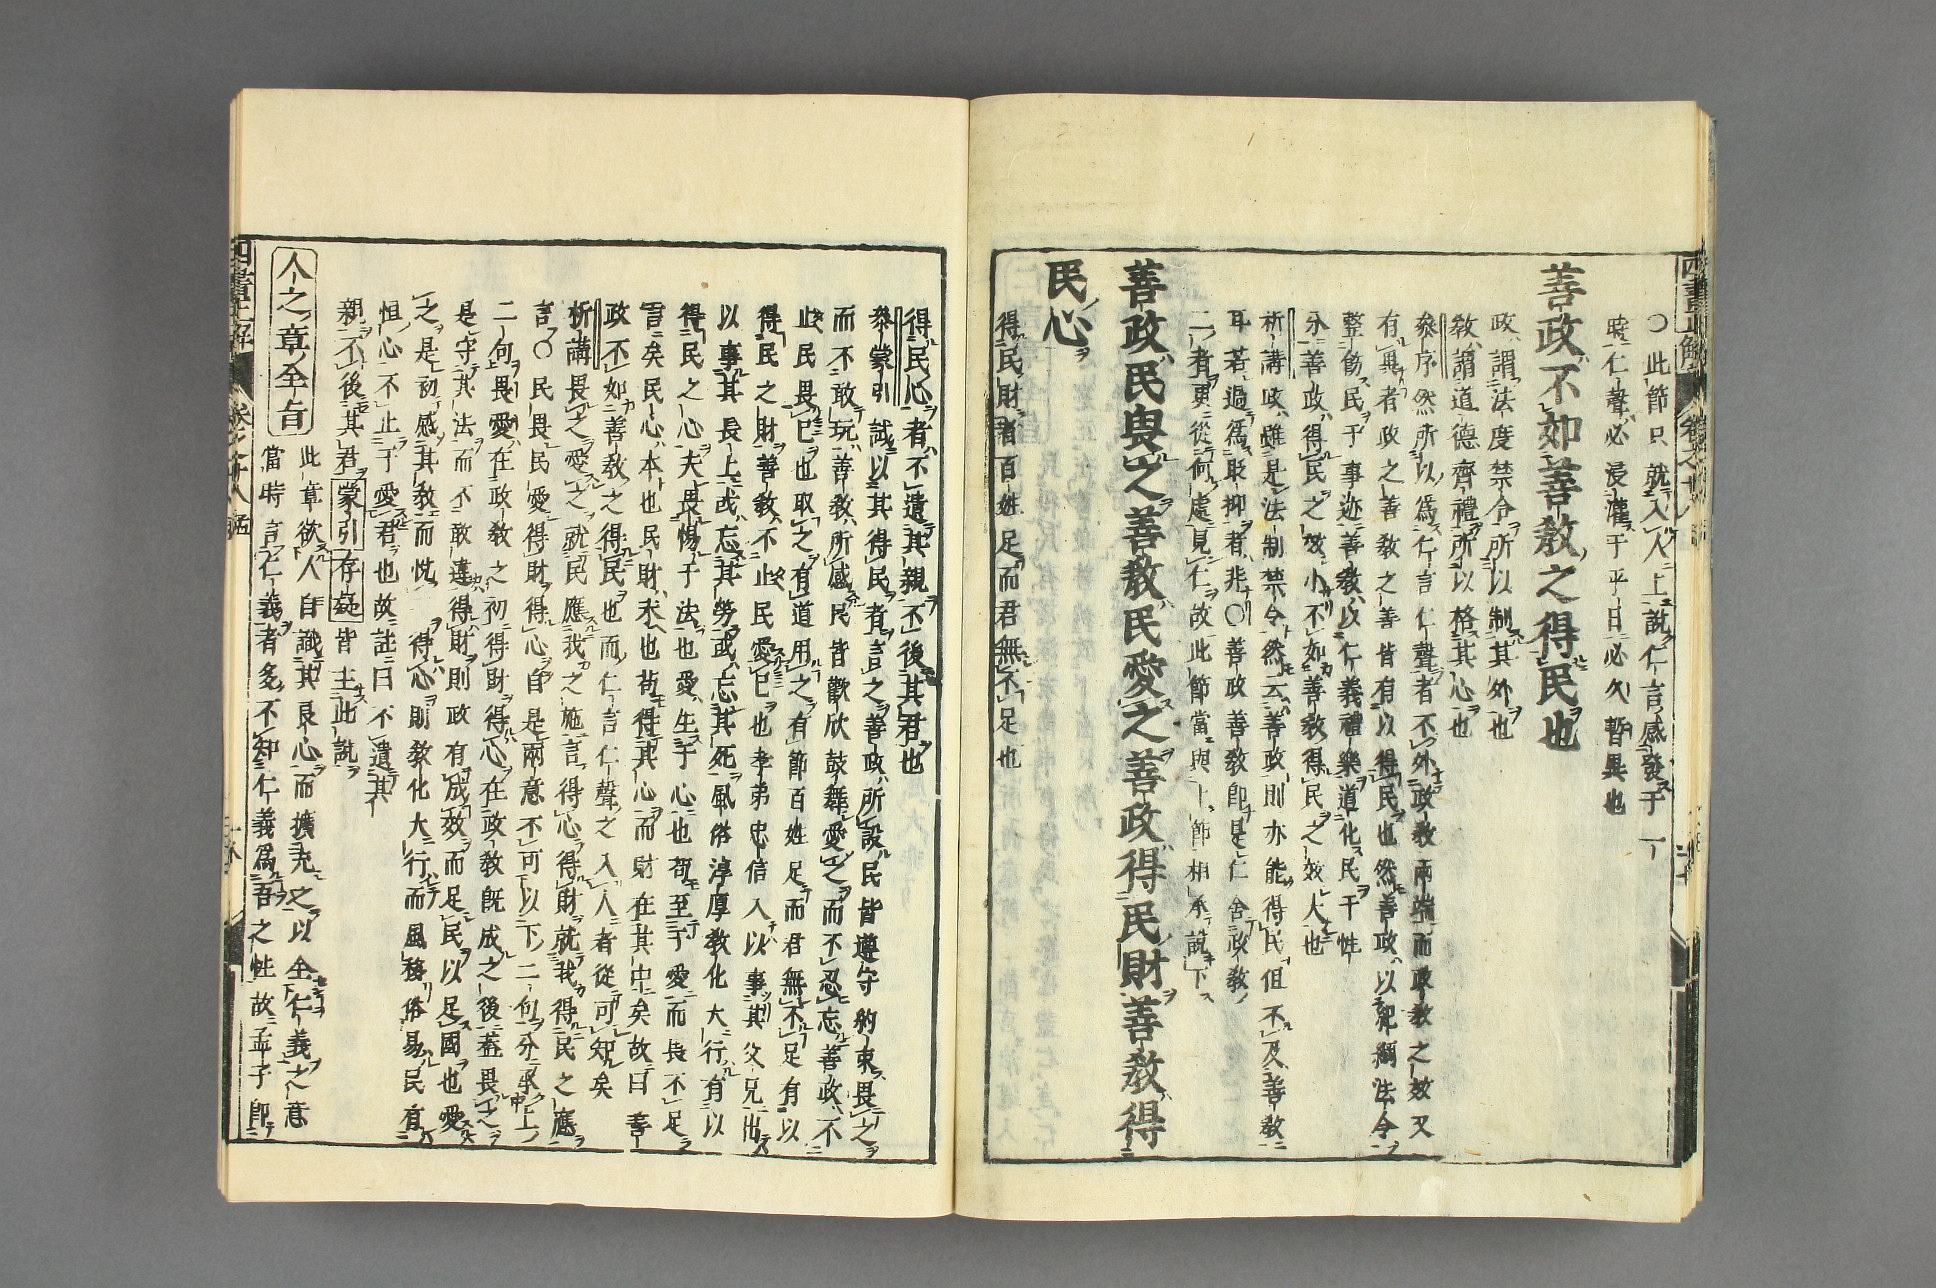 〇此節只就入人上說仁言感發于一
時仁聲必浸灌于平日必久暫異也
善政不如善教之得民也
政謂法度禁令所以制其外也
教謂道德齊禮所以格其心也
參序然所以爲仁言仁聲者不外政教兩端而政教之效又
有異者政之善教之善皆有以得民也然善政以紀綱法令
整飭民于事迹善教以仁義禮樂道化民于性
分善政得民之效小不如善教得民之效大也
析講政雖是法制禁令然云善政則亦能得民但不及善教
耳若過爲貶抑者非〇善政善教卽是仁舍政教
二者更從何處見仁故此節當與上節相承說下
善政民畏之善教民愛之善政得民財善教得
民心
得民財者百姓足而君無不足也
得民心者不遺其親不後其君也
參蒙引試以其得民者言之善政所設民皆遵守約束畏之
而不敢玩善教所感民皆歡欣鼓舞愛之而不忍忘善政不
止民畏已也取之有道用之有節百姓足而君無不足有以
得民之財善教不止民愛已也孝弟忠信入以事其父兄出
以事其長上或忘其勞或忘其死風俗淳厚教化大行有以
得民之心夫畏惕于法也愛生于心也苟至于愛而畏不足
言矣民心本也民財末也苟得其心而財在其中矣故曰善
政不如善教之得民也而仁言仁聲之入人者從可知矣
析講畏之愛之就民應我之施言得心得財就我得民之應
言〇民畏民愛得財得心自是兩意不可以下二句分承上
二句畏愛在政教之初得財得心在政教旣成之後蓋畏之
是守其法而不敢違得財則政有成效而足民以足國也愛
之是初感其教而悅得心則教化大行而風移俗易民有
恒心不止于愛君也故註曰不遺其
親不後其君蒙引存疑皆主此說
人之章全旨
此章欲人自識其良心而擴充之以全仁義之意
當時言仁義者多不知仁義爲吾之性故孟子卽
四書正解